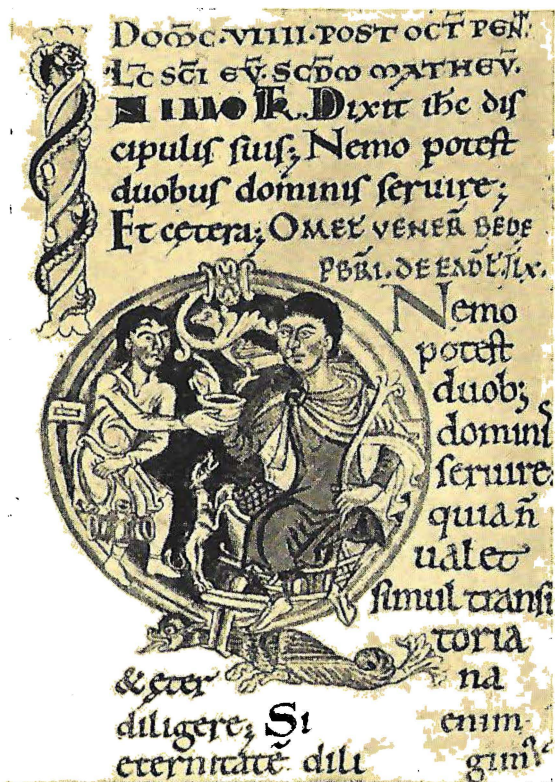 DOM̅C·VIIII·POST OCT̅ PEN̅T
L̅C SC̅I EV̅. SCD̅M MATHEV̅.
IN ILLO T̅R. Dixit ih̅c dis
cipulis suis; Nemo potest
duobus dominis seruire;
Et cętera; OMEL̅ VENER̅ BEDE
PB̅RI. DE EAD̅
Nemo
potest
duob;
domini
seruire.
quia n̅
ualet
simul transi
toria
& ęter na
diligere; Si enim
eternitate̅ dili gim